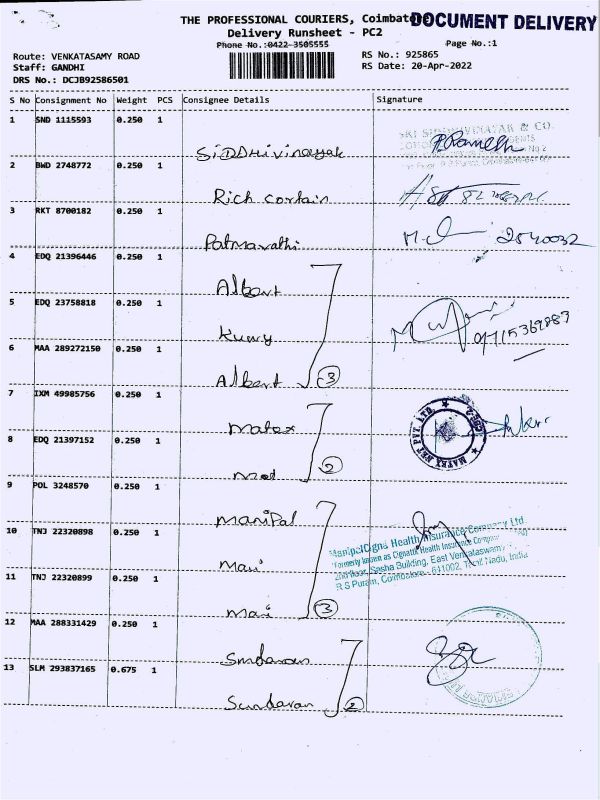 THE PROFESSIONAL COURIERS, Coimbatore
DOCUMENT DELIVERY
Delivery Runsheet - PC2
Phone No.:0422-3505555
Page No.:1
Route: VENKATASAMY ROAD
RS No.: 925865
Staff: GANDHI
RS Date: 20-Apr-2022
DRS No.: DCJB92586501
S No Consignment No Weight PCS Consignee Details Signature
1 SND 1115593 0.250 1
Siddhivinayak
P. Ramesh
2 BWD 2748772 0.250 1
Rich cortain
3 RKT 8700182 0.250 1
Patmavathi
2540032
4 EDQ 21396446 0.250 1
Albert
5 EDQ 23758818 0.250 1
6 MAA 289272150 0.250 1
Albert 3
7 IXM 49985756 0.250 1
Matex
MATEX NET PVT LTD.
8 EDQ 21397152 0.250 1
2
9 POL 3248570 0.250 1
Manipal
ManipalCigna Health Insurance Company Ltd.
(Formerly known as Cignattk Health Insurance Company
2nd floor, Sesha Building, East Venkataswamy
R S Puram, Coimbatore - 641002, Tamil Nadu, India
10 TNJ 22320898 0.250 1
Mani
11 TNJ 22320899 0.250 1
Mani 3
12 MAA 288331429 0.250 1
Sundaran
13 SLM 293837165 0.675 1
Sundaran 2